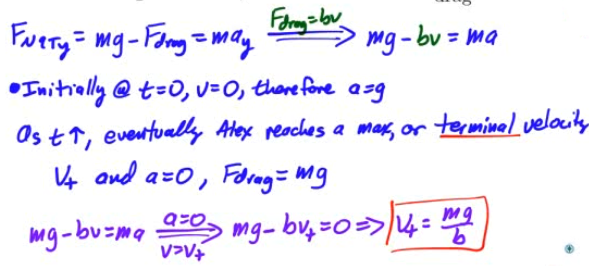 drag
F_NETy = mg - F_drag = ma_y  F_drag = bv ⟹  mg - bv = ma
• Initially @ t=0, v=0, therefore a=g
As t↑, eventually Alex reaches a max, or terminal velocity
V_t and a=0, F_drag = mg
mg - bv = ma  a=0 v=v_t ⟹  mg - bv_t = 0 ⟹ V_t = mg/b